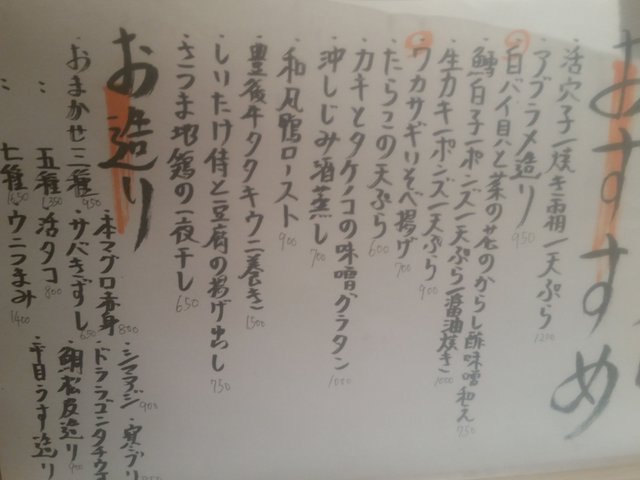 おすすめ
・活穴子一焼き霜一天ぷら 1200
・アブラメ造り 950
・白バイ貝と菜の花のからし酢味噌和え 750
・鱈白子一ポンズ一天ぷら一醤油焼き 1000
・生カキ一ポンズ一天ぷら 900
・ワカサギいそべ揚げ 700
・たらこの天ぷら 600
・カキとタケノコの味噌グラタン 1000
・沖しじみ酒蒸し 700
・和風鴨ロースト 900
・豊後牛タタキウニ巻き 1500
・しいたけ侍と豆腐の揚げ出し 750
・さつま地鶏の一夜干し 650
お造り
・おまかせ三種 950
： 五種 1350
： 七種 1650
・本マグロ赤身 800
・サバきずし 650
・活タコ 800
・ウニつまみ 1400
・シマアジ 900
・寒ブリ
・ドララゴンタチウオ
・鯛松皮造り 900
・平目うす造り